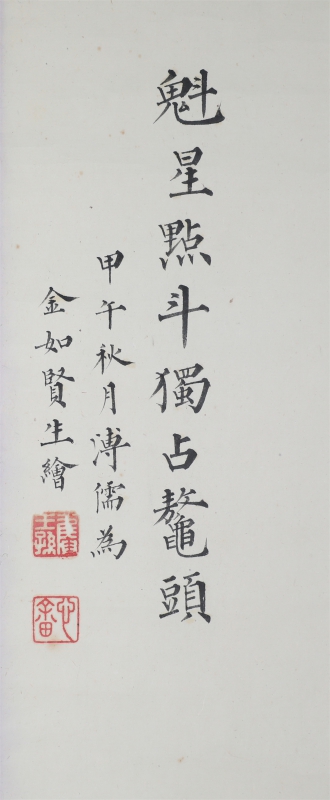 魁星點斗獨占鼇頭
甲午秋月溥儒為
金如賢生繪
舊王孫
心畬